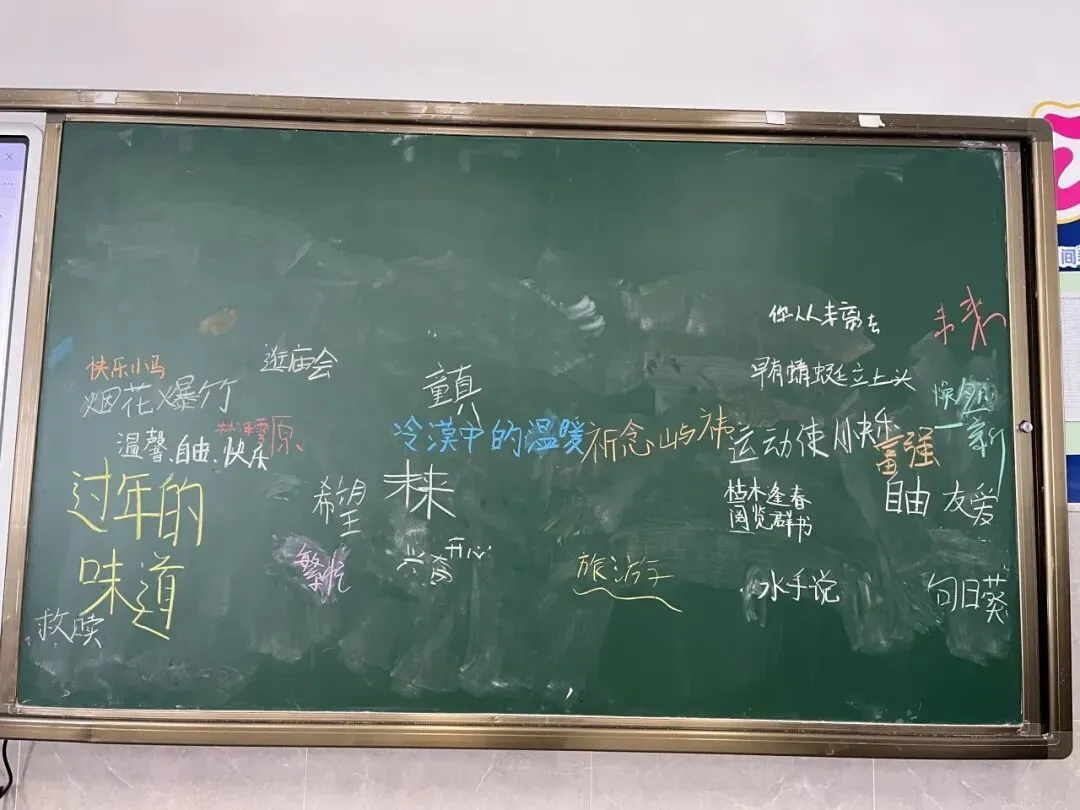 快乐小马
逛庙会
烟花爆竹
温馨.自由.快乐
原
过年的
味道
救赎
希望
繁忙
童真
冷漠中的温暖
未来
兴奋
开心
祈念山屿祎
旅游
你从未离去
早有蜻蜓立上头
运动使小快乐
富强
枯木逢春
阅览群书
自由
友爱
水手说
向日葵
未来
焕然
一新
间